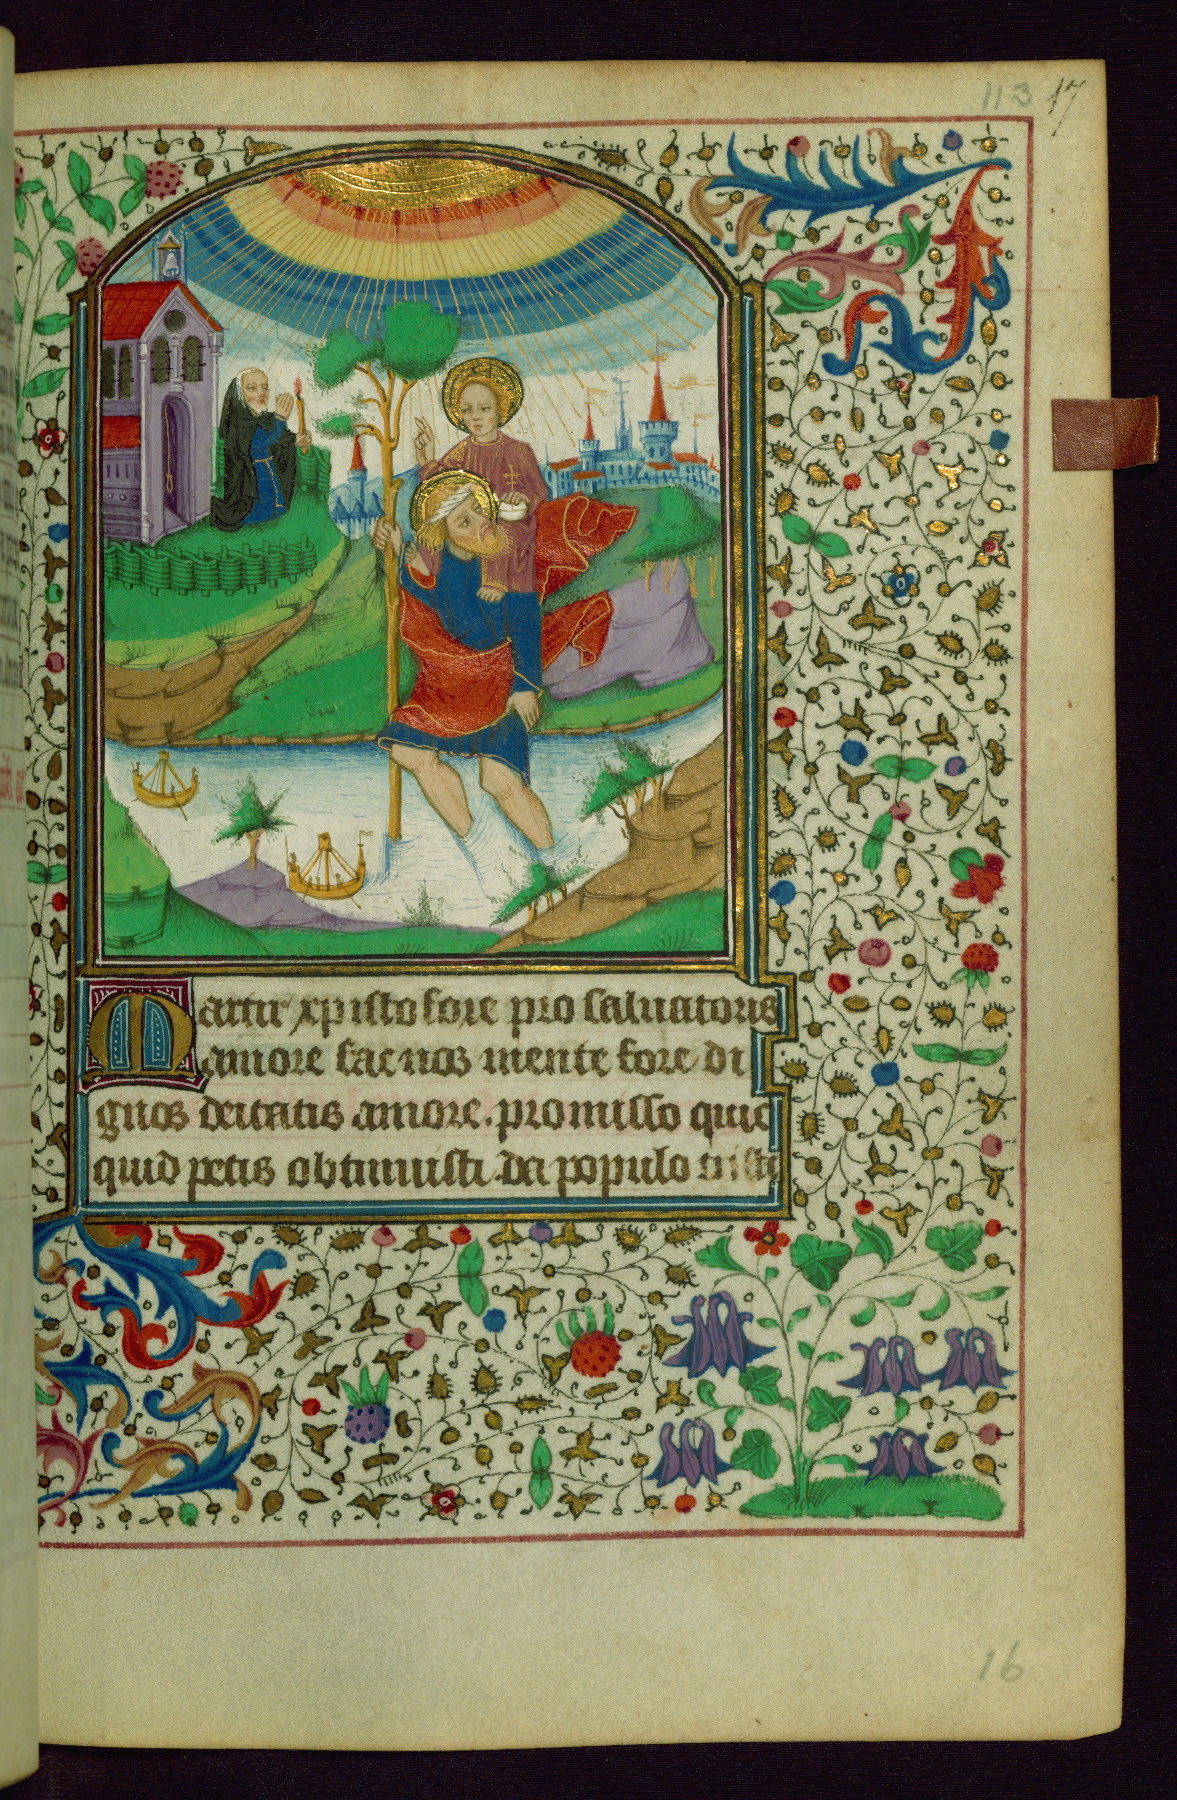 113 17
Martir xpistofore pro saluatoris
amore fac nos mente fore di
gnos deitatis amore. promisso quic
quid petis obtinuisti. da populo tristi
16